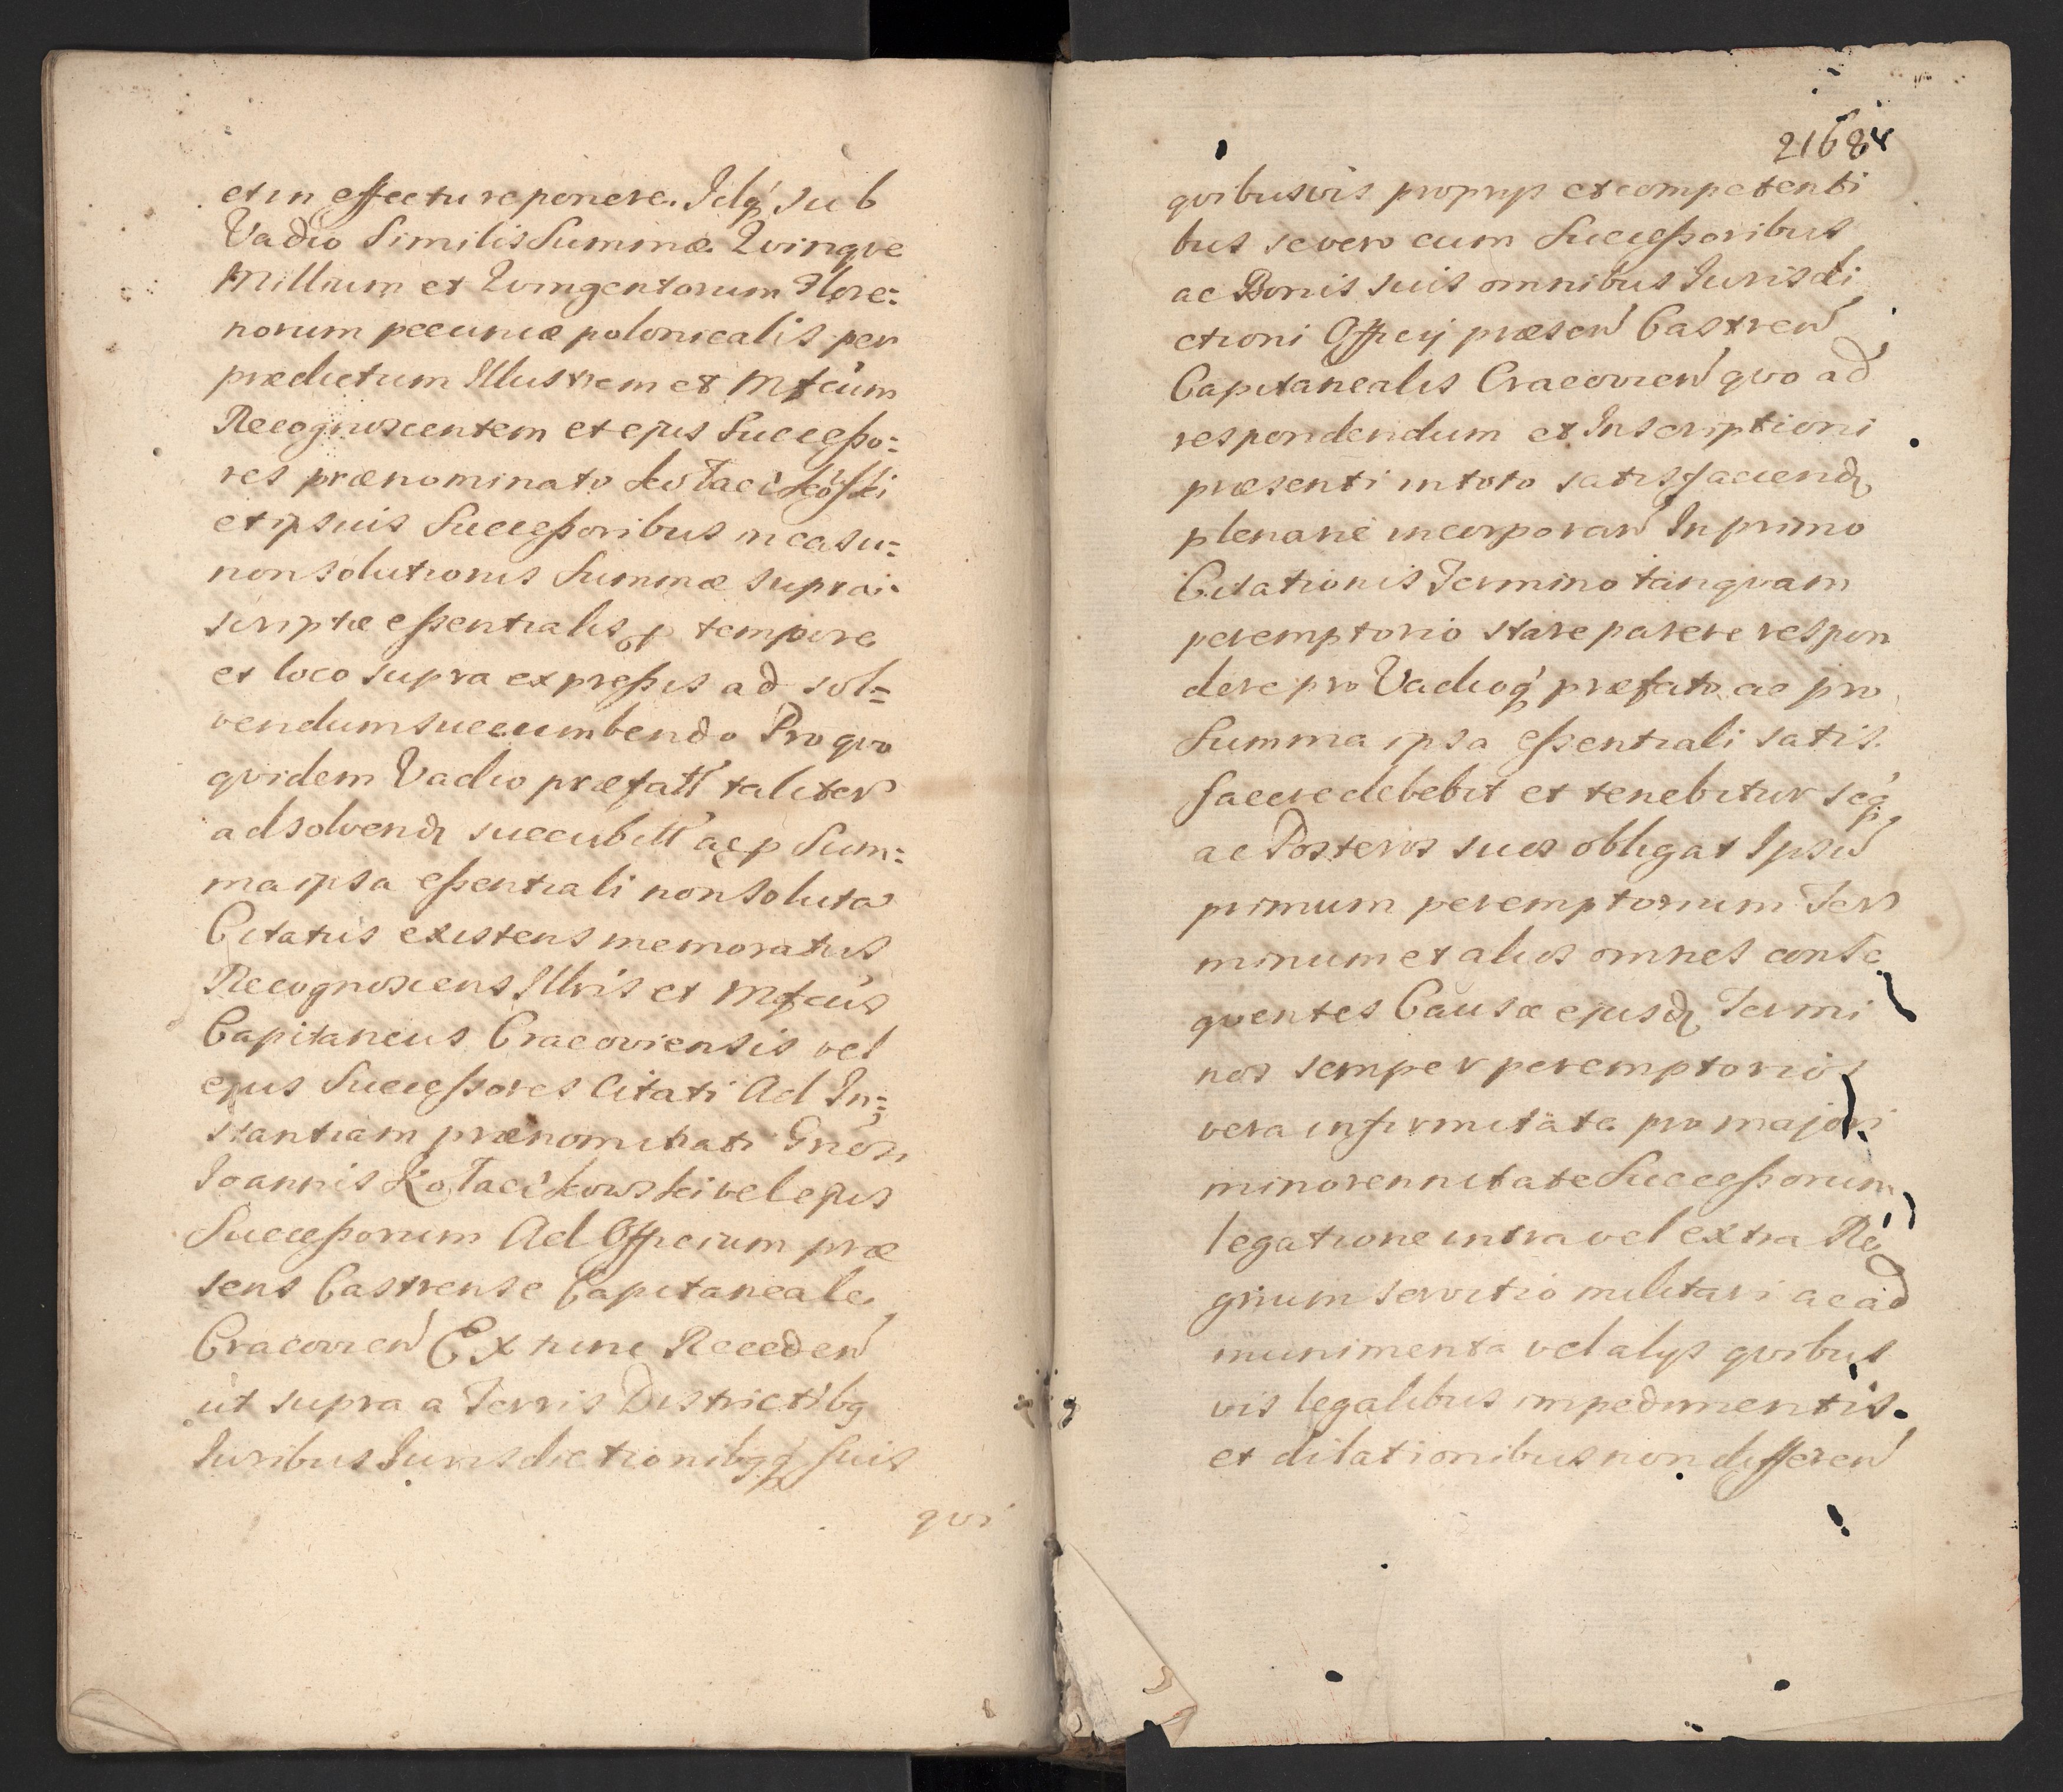 et in effectu reponere. Idq́ sub
Vadio Similis Summæ Qvinqve
Millium et Qvingentorum Flore=
norum pecuniæ polonicalis per
prædictum Illustrem et Mfcum
Recognoscentem et ejus Successo=
res prænominato Kołaczkoski
et ipsuis Successoribus in casu=
non solutionis Summæ suprai=
scriptæ essentialis p tempore
et loco supra expressis ad sol=
vendum succumbendo Pro qvo
qvidem Vadio præfatt taliter
ad solvend succubitt ac p Sum=
ma ipsa essentiali non soluta
Citatus existens memoratus
Recognoscens Illris et Mfcus
Capitaneus Cracoviensis vel
ejus Successores Citati Ad In=
stantiam prænominati Gnosi
Joannis Kołaczkowski vel ejus
Successorum Ad Officium præ
sens Castrense Capitaneale
Cracovien Ex tunc Receden
ut supra a Terris Districtibq
Juribus Jurisdictionibqq́ suis
qvi
2168
qvibusvis proprijs et competenti
bus se vero cum Successoribus
ac Bonis suis omnibus Jurisdi
ctioni Officij præsen Castren
Capitanealis Cracovien qvo ad
respondendum et Inscriptioni
præsenti in toto satisfaciend
plenarie incorporan In primo
Citationis Termino tanqvam
peremptorio stare parere respon
dere pro Vadioq́ præfato ac pro
Summa ipsa essentiali satis
facere debebit et tenebitur seq́
ac Posteros suos obligat Ipsu
primum peremptorium Ter
minum et alios omnes conse
qventes Causæ ejusd Termi
nos semper peremptorios
vera infirmitate pro majori
minorennitate Successorum
legatione intra vel extra Re
gnum servitio militari ac ad
munimenta vel alijs qvibus
vis legalibus impedimentis
et dilationibus non differen